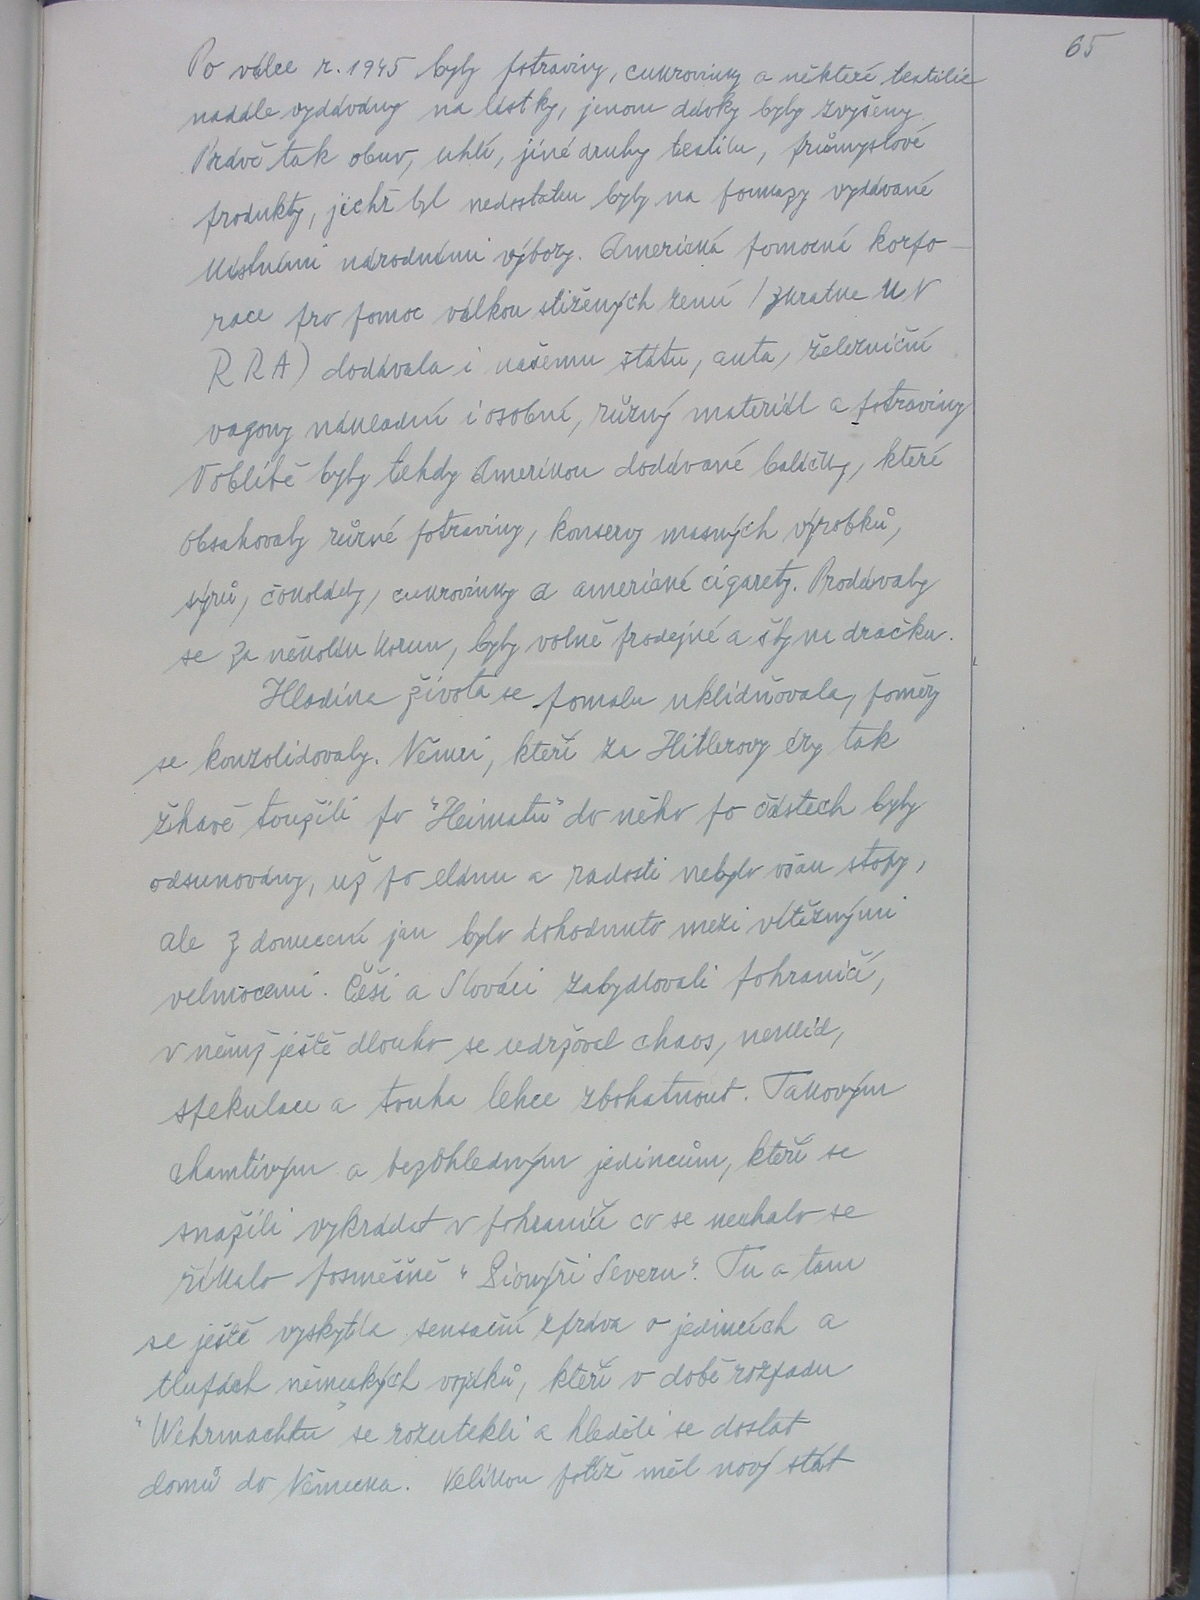 65
Po válce r. 1945 byly potraviny, cukrovinky a některé textilie
nadále vydávány na lístky, jenom dávky byly zvýšeny.
Právě tak obuv, uhlí, jiné druhy textilu, průmyslové
produkty, jichž byl nedostatek byly na poukazy vydávané
Místními národními výbory. Americká pomocná korpo-
race pro pomoc válkou stižených zemí / zkratka UN
RRA) dodávala i našemu státu, auta, železniční
vagony nákladní i osobní, různý materiál a potraviny
V oblibě byly tehdy Amerikou dodávané balíčky, které
obsahovaly různé potraviny, konservy masných výrobků,
sýrů, čokolády, cukrovinky a americké cigarety. Prodávaly
se za několik korun, byly volně prodejné a šly na dračku.
Hladina života se pomalu uklidňovala, poměry
se konzolidovaly. Němci, kteří za Hitlerovy éry tak
žhavě toužili po "Heimatu" do něho po částech byly
odsunovány, už po elánu a radosti nebylo však stopy,
ale z donucení jak bylo dohodnuto mezi vítěznými
velmocemi. Češi a Slováci zabydlovali pohraničí,
v němž ještě dlouho se udržoval chaos, neklid,
spekulace a touha lehce zbohatnout. Takovým
chamtivým a bezohledným jedincům, kteří se
snažili vykrádat v pohraničí co se nechalo se
říkalo posměšně "Pionýři Severu". Tu a tam
se ještě vyskytla sensační zpráva o jedincích a
tlupách německých vojáků, kteří v době rozpadu
"Wehrmachtu" se rozutekli a hleděli se dostat
domů do Německa. Velikou potíž měl nový stát